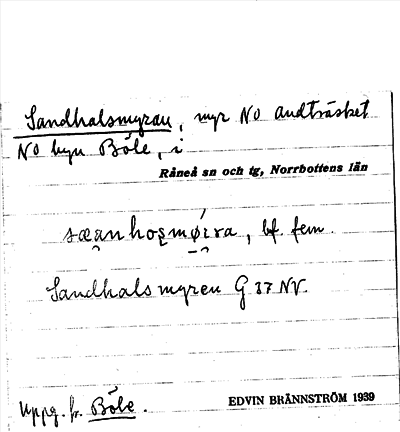 Sandhalsmyran, myr NO Andträsket
NO byn Böle, i
Råneå sn och tg, Norrbottens län
sæanhosmøira, bf. fem.
Sandhalsmyren G 37 NV.
Uppg. fr. Böle.
EDVIN BRÄNNSTRÖM 1939